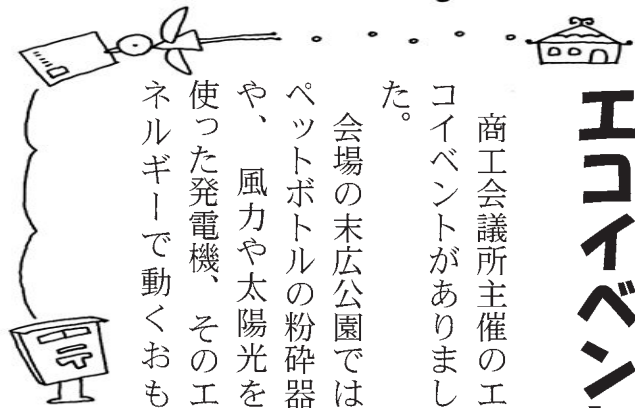 エコイベン
商工会議所主催のエ
コイベントがありまし
た。
会場の末広公園では
ペットボトルの粉砕器
や、風力や太陽光を
使った発電機、そのエ
ネルギーで動くおも
〒